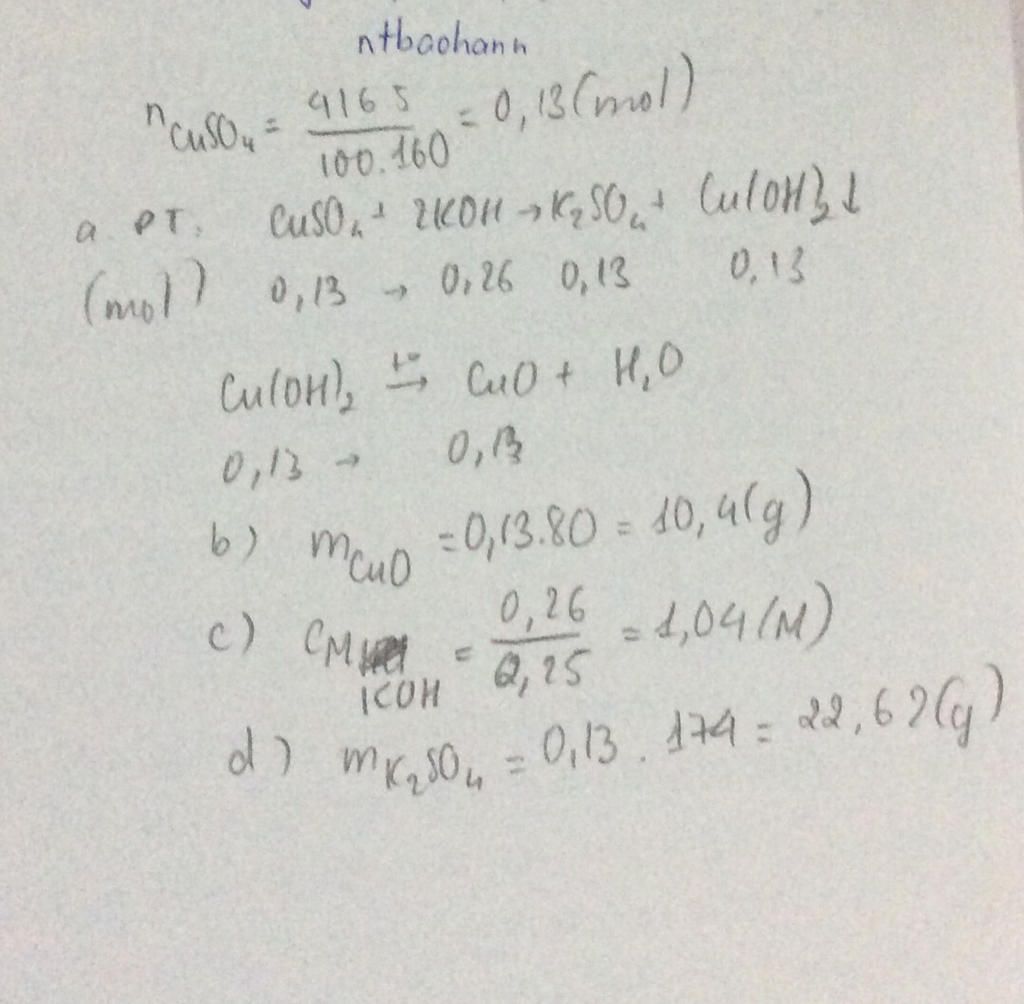 ntbaohann
n CuSO₄ = 416 5 / 100.160 = 0,13 (mol)
a PT: CuSO₄ + 2KOH → K₂SO₄ + Cu(OH)₂↓
(mol) 0,13 → 0,26 0,13 0,13
Cu(OH)₂ t° → CuO + H₂O
0,13 → 0,13
b) m CuO = 0,13.80 = 10,4(g)
c) CM KOH = 0,26 / 0,25 = 1,04 (M)
d) m K₂SO₄ = 0,13 . 174 = 22,62(g)